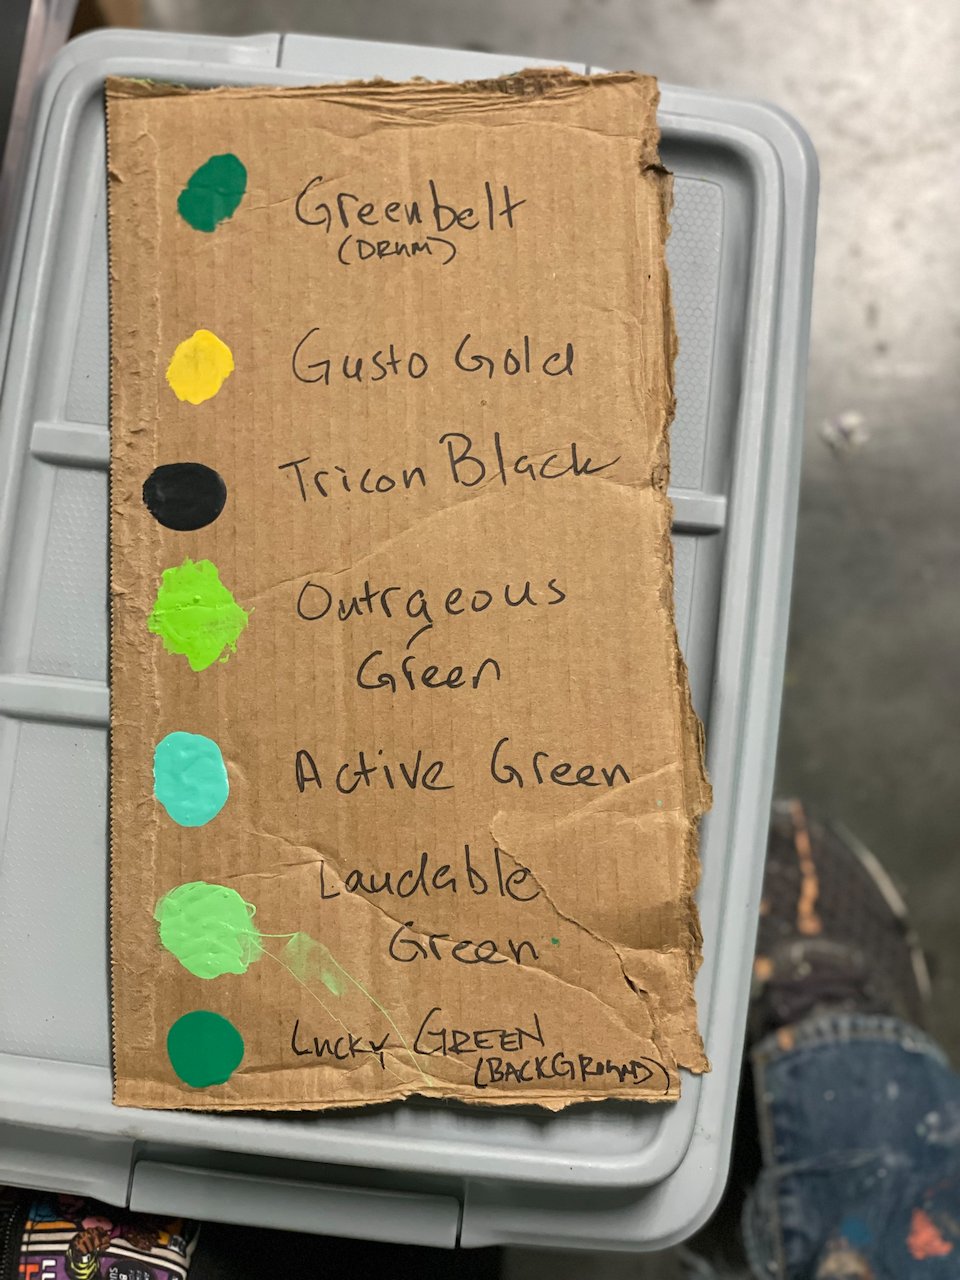 Greenbelt
(DRUM)
Gusto Gold
Tricon Black
Outrageous
Green
Active Green
Laudable
Green
Lucky GREEN
(BACKGROUND)